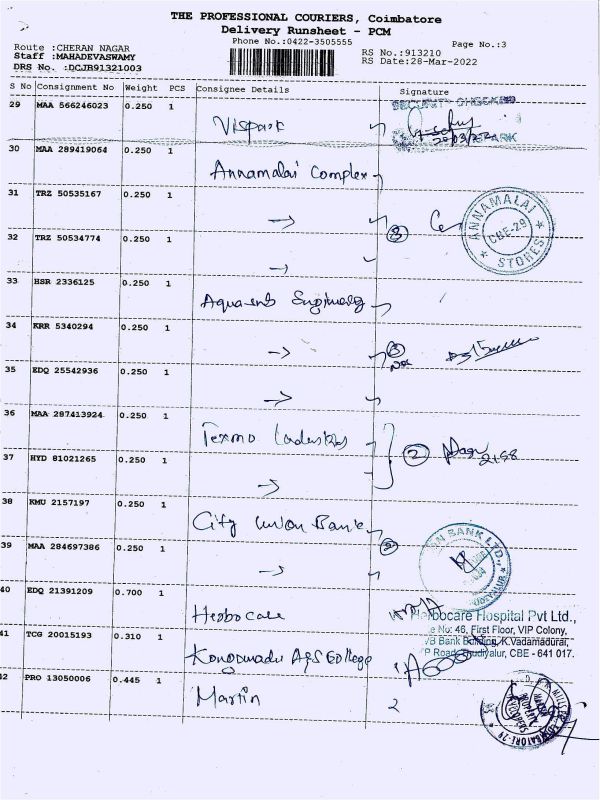 THE PROFESSIONAL COURIERS, Coimbatore
Delivery Runsheet - PCM
Phone No.:0422-3505555
Page No.:3
Route :CHERAN NAGAR
Staff :MAHADEVASWAMY
DRS No. :DCJB91321003
RS No.:913210
RS Date:28-Mar-2022
S No Consignment No Weight PCS Consignee Details Signature
29 MAA 566246023 0.250 1 Vispark
SECURITY CHECKED
30 MAA 289419064 0.250 1 Annamalai Complex
31 TRZ 50535167 0.250 1 →
3
ANNAMALAI STORES CBE-29
32 TRZ 50534774 0.250 1 →
33 HSR 2336125 0.250 1
34 KRR 5340294 0.250 1 →
35 EDQ 25542936 0.250 1 →
36 MAA 287413924 0.250 1 Texmo Industries
2
37 HYD 81021265 0.250 1 →
38 KMU 2157197 0.250 1 City Union Bank
39 MAA 284697386 0.250 1 →
2
BANK LTD.,
40 EDQ 21391209 0.700 1 Herbocare
Herbocare Hospital Pvt Ltd.,
No: 46, First Floor, VIP Colony,
VB Bank Building, K.Vadamadurai,
Road, Thudiyalur, CBE - 641 017.
41 TCG 20015193 0.310 1 Kongunadu A&S College
42 PRO 13050006 0.445 1 Martin 2
COIMBATORE-29